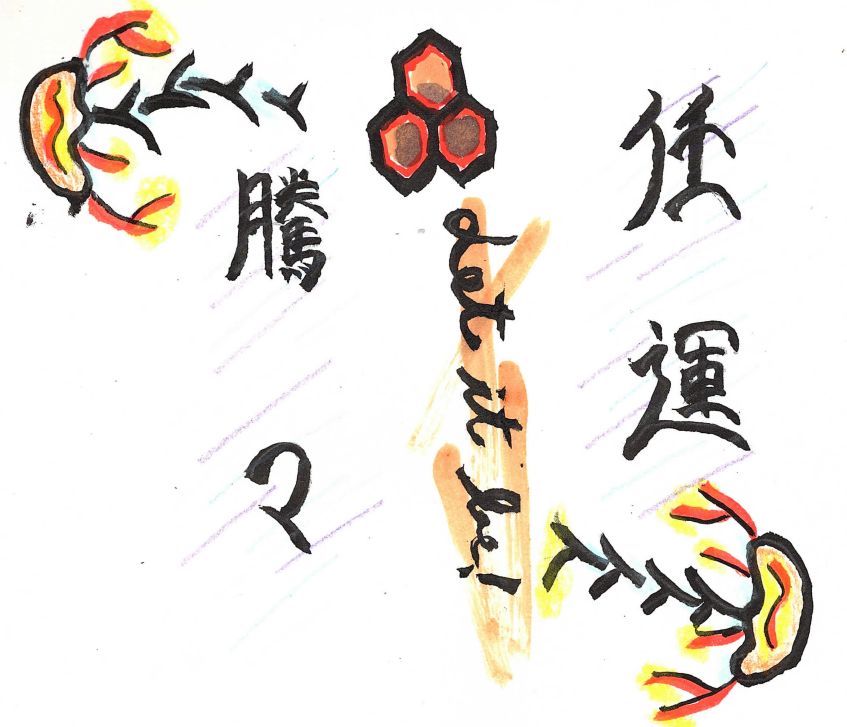 任運
Let it be!
騰々